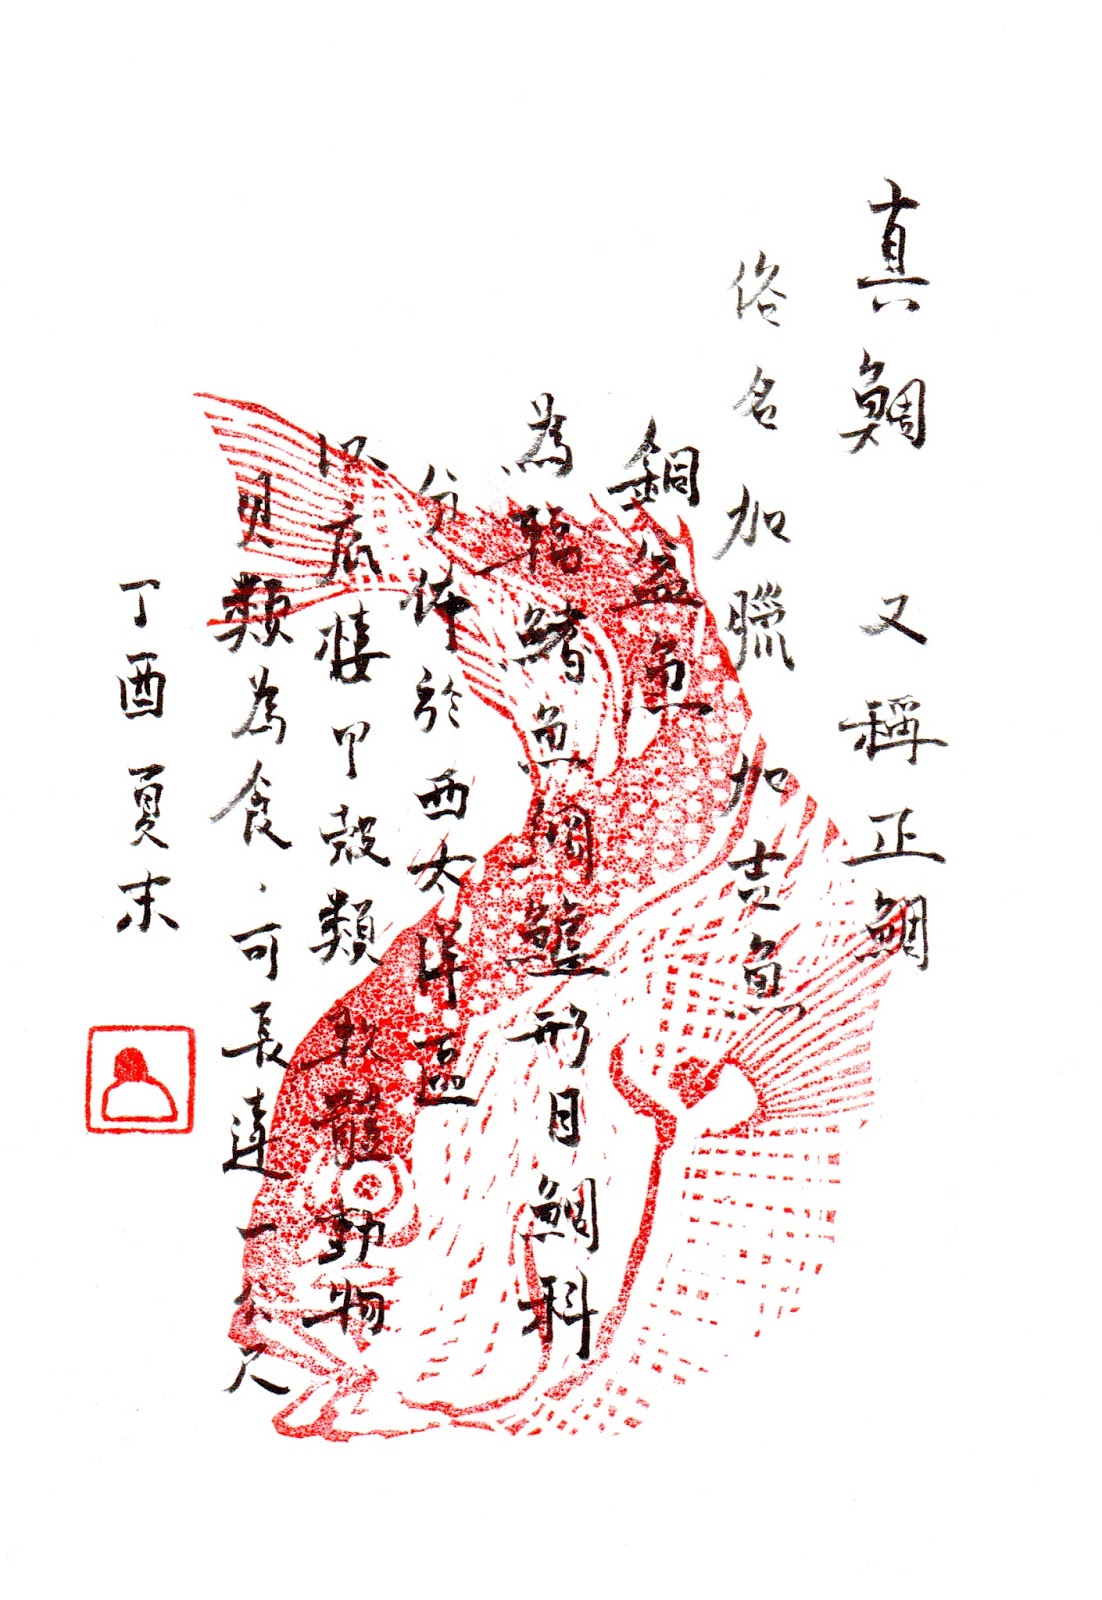 真鯛 又稱正鯛
俗名加臘 加吉魚
銅盆魚
為輻鰭魚綱鱸形目鯛科
分佈於西太洋區
底棲甲殼類 軟體動物
貝類為食，可長達一公尺
丁酉夏末